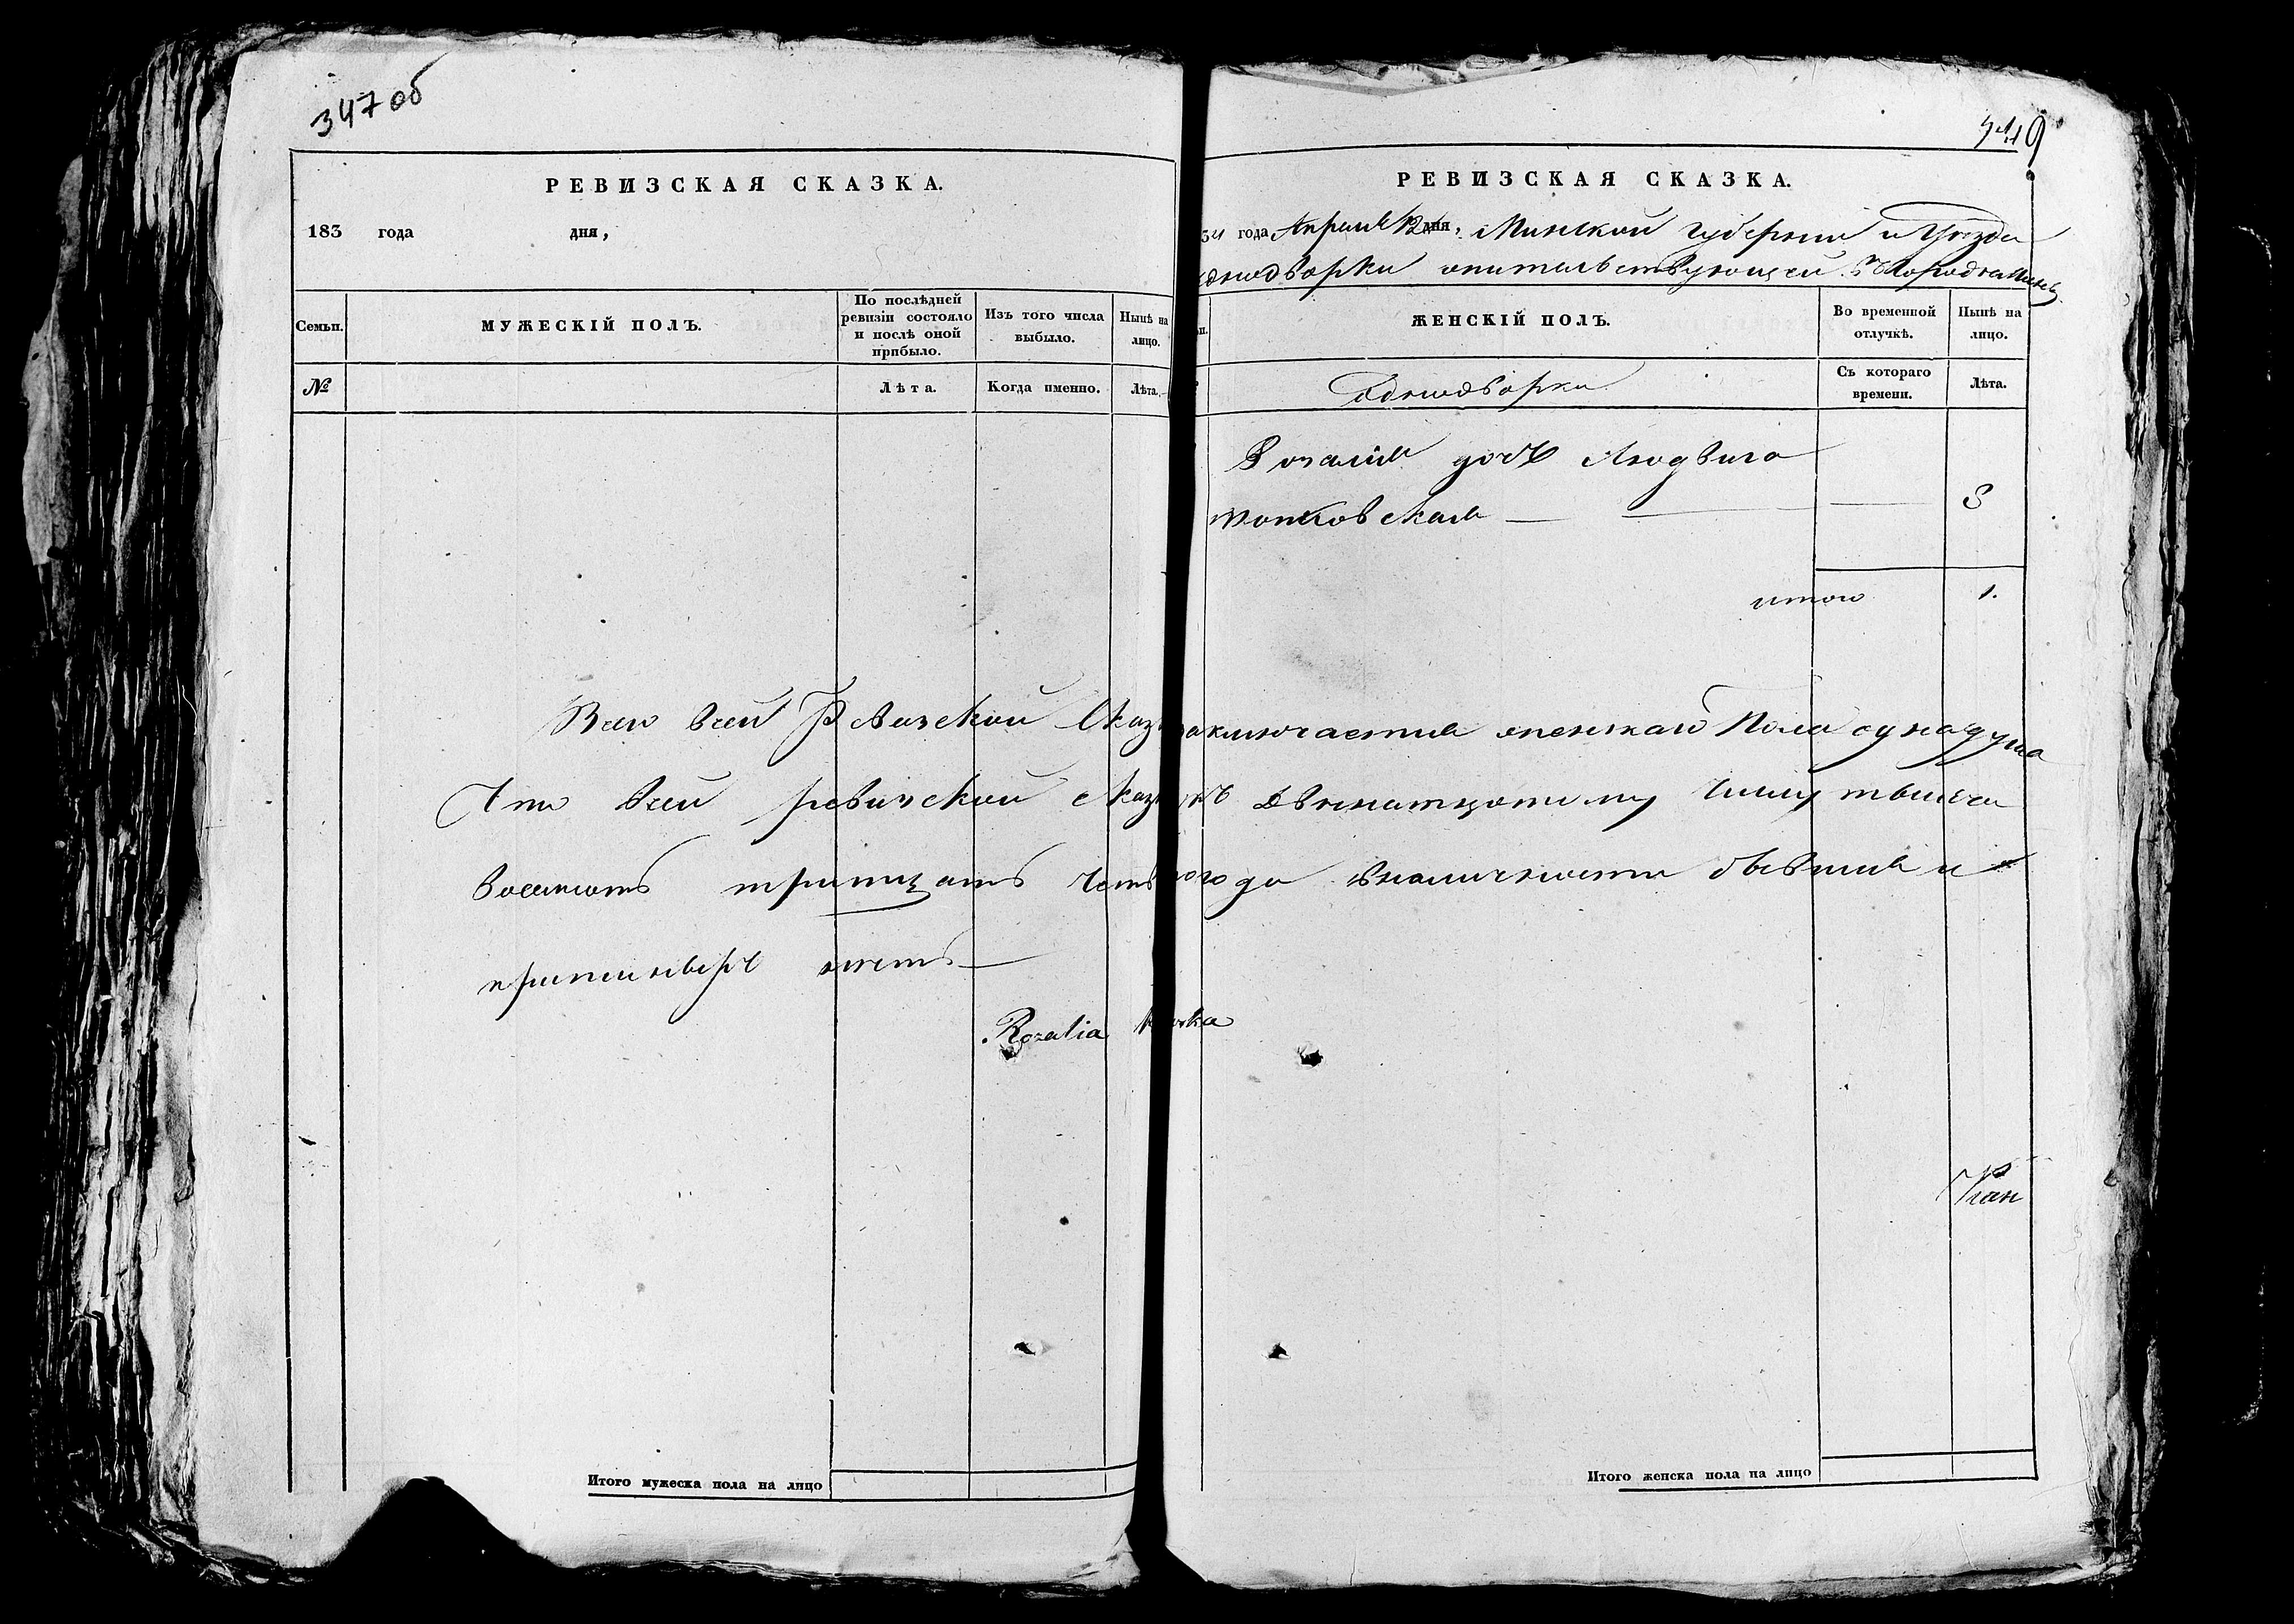 347 об
РЕВИЗСКАЯ СКАЗКА.
183 года дня,
Семьи. МУЖЕСКІЙ ПОЛЪ. По послѣдней ревизіи состояло и послѣ оной прибыло. Изъ того числа выбыло. Нынѣ на лицо.
№ Лѣта. Когда именно. Лѣта.
Итого мужеска пола на лицо
РЕВИЗСКАЯ СКАЗКА.
34 года Апреля 12 дня, Минской губернии и уезда
однодворки жительствующей
ЖЕНСКІЙ ПОЛЪ. Во временной отлучкѣ. Нынѣ на лицо.
Однодворки Съ котораго времени. Лѣта.
Розалия дочь Людвига
3
итого 1.
Всего в сей Ревизской Сказ заключается женскаго Пола одна душа
Что в сей ревизской сказ тысеча
восемсотъ тритцать года вналичности бывшия и
нетъ
Rozalia
Итого женска пола на лицо